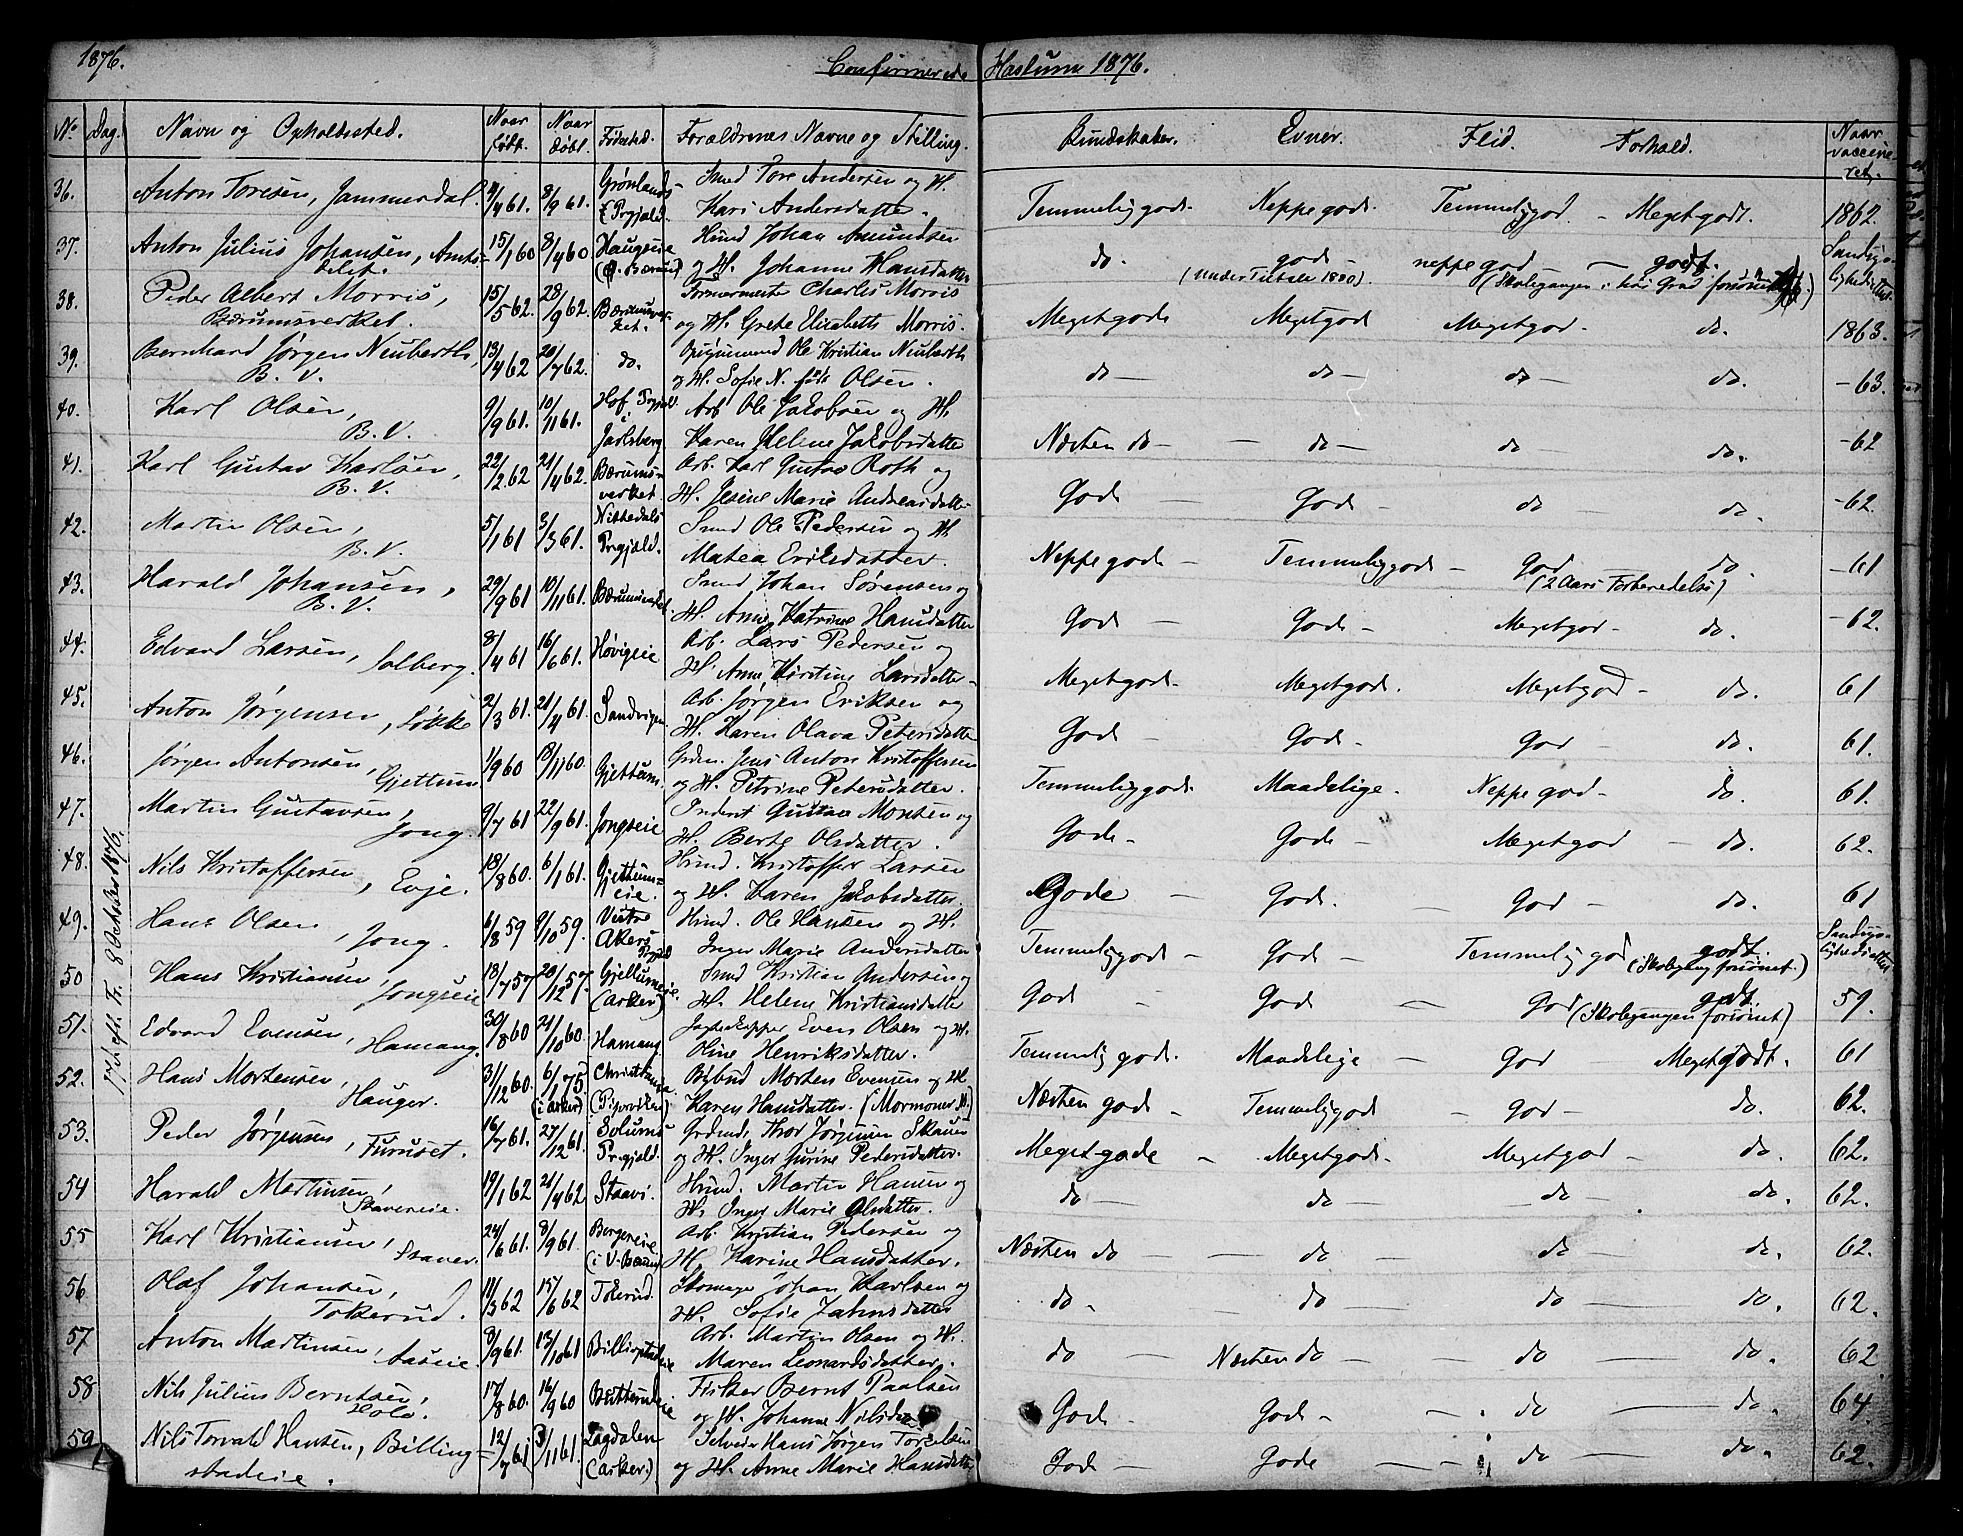 1876.
Confirmerede Haslum 1876.
No Dag. Navn og Opholdssted. Naar født. Naar døbt. Fødested. Forældrenes Navne og Stilling. Kundskaber. Evner. Flid. Forhold. Naar vaccineret.
17de S. eft. Tr. 8 October 1876.
36. Anton Toresen, Jammerdal. 4/4 61. 8/9 61. Grønlands Prgjæld. Smed Tore Andersen og H.
Kari Andersdatter. Temmelig gode. Neppe gode. Temmelig god. – Meget godt. 1862.
37. Anton Julius Johansen, Amtsdelet. 15/1 60 8/4 60 Haugseie (V. Bærum) Husmd Johan Amundsen
og H. Johanne Hansdatter. do. god (under Tiltale 1800). neppe god – godt. (Skolegangen i høi Grad forsømt) Sandsynlighedsattest.
38. Peder Albert Morris,
Bærumsverket. 15/5 62. 28/9 62. Bærumsverket. Formermester Charles Morris
og H. Grete Elisabeth Morris. Meget gode Meget god Meget god – do. 1863.
39. Bernhard Jørgen Neuberth,
B. V. 13/4 62 20/7 62. do. Opsynsmand Ole Kristian Neuberth
og H. Sofie N. født Olsen. do – do – do – do. – 63.
40. Karl Olsen,
B. V. 9/9 61. 10/11 61. Hof Prgjæld i Jarlsberg Arb. Ole Jakobsen og H.
Karen Helene Jakobsdatter Næsten do – – do – do do. – 62
41. Karl Gustav Karlsen,
B. V. 22/2 62 21/4 62. Bærumsverket. Arb. Karl Gustav Roth og
H. Jesine Marie Andreasdatter God – God – do do. – 62.
42. Martin Olsen,
B. V. 5/1 61 3/3 61. Nittedals Prgjæld. Smed Ole Pedersen og H.
Matea Eriksdatter. Neppe gode Temmelig gode – God (2 Aars Forberedelse) do. – 61
43. Harald Johansen,
B. V. 29/9 61 10/11 61. Bærumsverket. Smed Johan Sørensen og
H. Anne Katrine Hansdatter God – Gode – Meget god – do. – 62.
44. Edvard Larsen, Solberg. 8/4 61 16/6 61. Høvigeie Arb. Lars Pedersen og
H. Anne Kirstine Larsdatter – Meget gode. Meget gode. Meget god – do. 61
45. Anton Jørgensen, Løkke 2/3 61. 21/4 61. Sandvigen Arb. Jørgen Eriksen og
H. Karen Olava Petersdatter God – God – god – do. 61.
46. Jørgen Antonsen,
Gjettum 1/9 60 18/11 60. Gjettum. Grdm. Jens Anton Kristoffersen
og H. Petrine Petersdatter. Temmelig gode Maadelige. Neppe god – do. 61.
47. Martin Gustavsen,
Jong. 9/7 61 22/9 61. Jongseie Inderst Gustav Monsen og
H. Berte Olsdatter. Gode – Gode – Meget god – do. 62.
48. Nils Kristoffersen, Evje. 18/8 60. 6/1 61. Gjettumeie. Husmd. Kristoffer Larsen
og H. Karen Jakobsdatter. Gode – Gode. – god – do. 61
49. Hans Olsen, Jong. 6/8 59 9/10 59. Vestre Akers Prgjæld Husmd. Ole Hansen og H.
Inger Marie Andersdatter Temmelig gode God – Temmelig god godt. (Skolegang forsømt.) Sandsynlighedsattest
50 Hans Kristiansen,
Jongseie 18/7 57 20/12 57. Gjettumeie. (Asker) Smed Kristian Andersen og
H. Helene Kristiansdatter God – God – God godt. (Skolegangen forsømt) 59.
51. Edvard Evensen, Hamang. 30/8 60 21/10 60. Hamang Jagteskipper Even Olsen og H.
Oline Henriksdatter. Temmelig gode. Maadelige – god Meget godt. 61
52. Hans Mortensen,
Hauger. 31/12 60. 6/1 75 (i Asker) Christiania (Pipervigen) Bøbud Morten Evensen og H.
Karen Hansdatter. (Mormoner M.) Næsten gode – Temmelig god – god – do. 62.
53. Peder Jørgensen, Furuset. 16/7 61. 27/12 61. Solums Prgjæld. Grdmd. Thor Jørgensen Skauen
og H. Inger Gurine Pedersdatter. Meget gode – Meget gode – Meget god – do. 62.
54 Harald Martinsen,
Stavereie. 19/1 62 21/4 62 Staavi. Husmd. Martin Hansen og
H. Inger Marie Olsdatter. do – do do – do. 62.
55 Karl Kristiansen,
Staver. 24/6 61. 8/9 61. Bergereie (i V. Bærum) Arb. Kristian Pedersen og
H. Karine Hansdatter. Næsten do – – do – do – do. 62.
56 Olaf Johansen,
Tokerud. 11/3 62 15/6 62 Tokerud. Skomager Johan Karlsen og
H. Sofie Jahnsdatter do. do do – do. 62.
57 Anton Martinsen, Aaseie. 8/9 61. 13/10 61 Billingstadeie Arb. Martin Olsen og H.
Maren Leonardsdatter. do – Næsten do – do – do. 62
58 Nils Julius Berntsen,
Holo. 17/8 60. 16/9 60 Butterudeie Fisker Bernt Paalsen
og H. Johanne Nilsda God – God – – do – do. 64.
59 Nils Torvald Hansen, Billingstadeie. 12/7 61 3/11 61. Lagdalen (Asker.) Selveier Hans Jørgen Torkelsen
og H. Anne Marie Hansdatter God – Gode – do – do. 62.